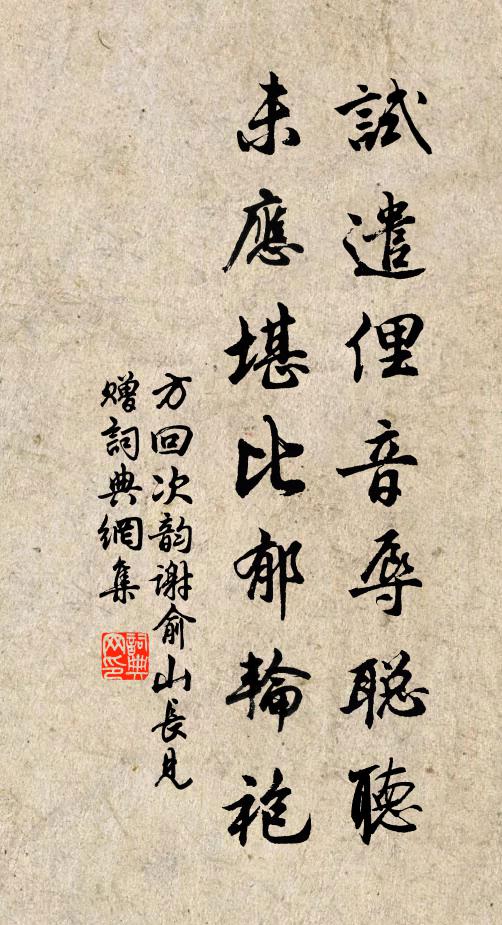 試遣俚音辱聡聽
未應堪比郁輪袍
方回次韵謝俞山長見
贈詞典網集
詞典網印